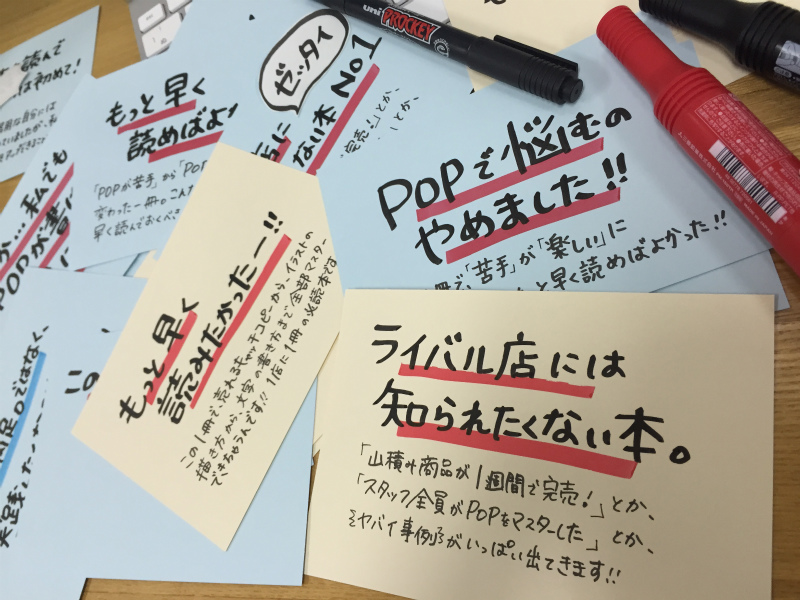 もっと早く
読めばよ
「POPが苦手」から「POP
変わった一冊のこん
早く読んでおくべき
ゼッタイ
ない本 No1
完売!」とか、
とか、
uni PROCKEY
POPで悩むの
やめました!!
「苦手」が「楽しい」に
と早く読めばよかった!!
もっと早く
読みたかったー!!
この1冊で、売れるキャッチコピーから、イラストの
描き方から、文字の書き方まで全部マスター
できちゃうんです!! 1店に1冊の必読本です
ライバル店には
知られたくない本。
「山積み商品が1週間で完売!」とか、
「スタッフ全員がPOPをマスターした」とか、
ヤバイ事例がいっぱい出てきます!!
私でも
POPが書
ではなく、